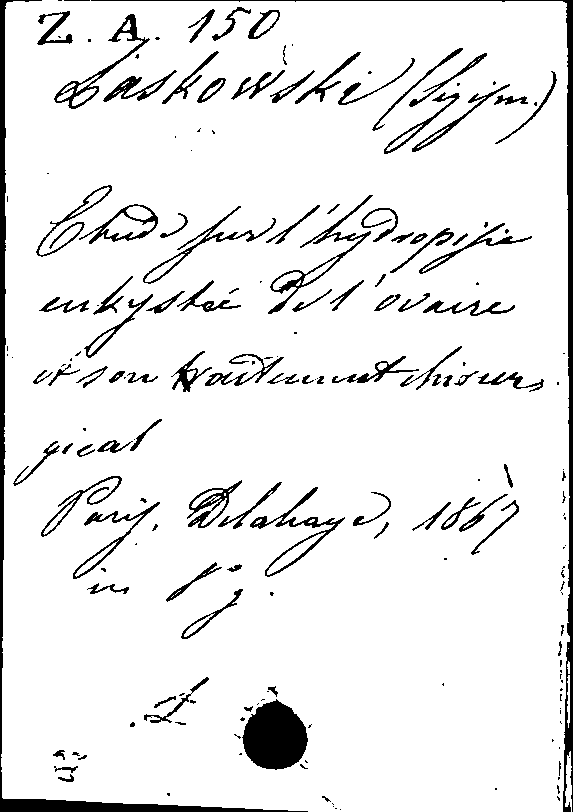 Z. A. 150
Laskowski (Sigism.)
Etude sur l'hydropisie
enkystée de l'ovaire
et son traitement chirur-
gical
Paris, Delahaye, 1867
in 8º